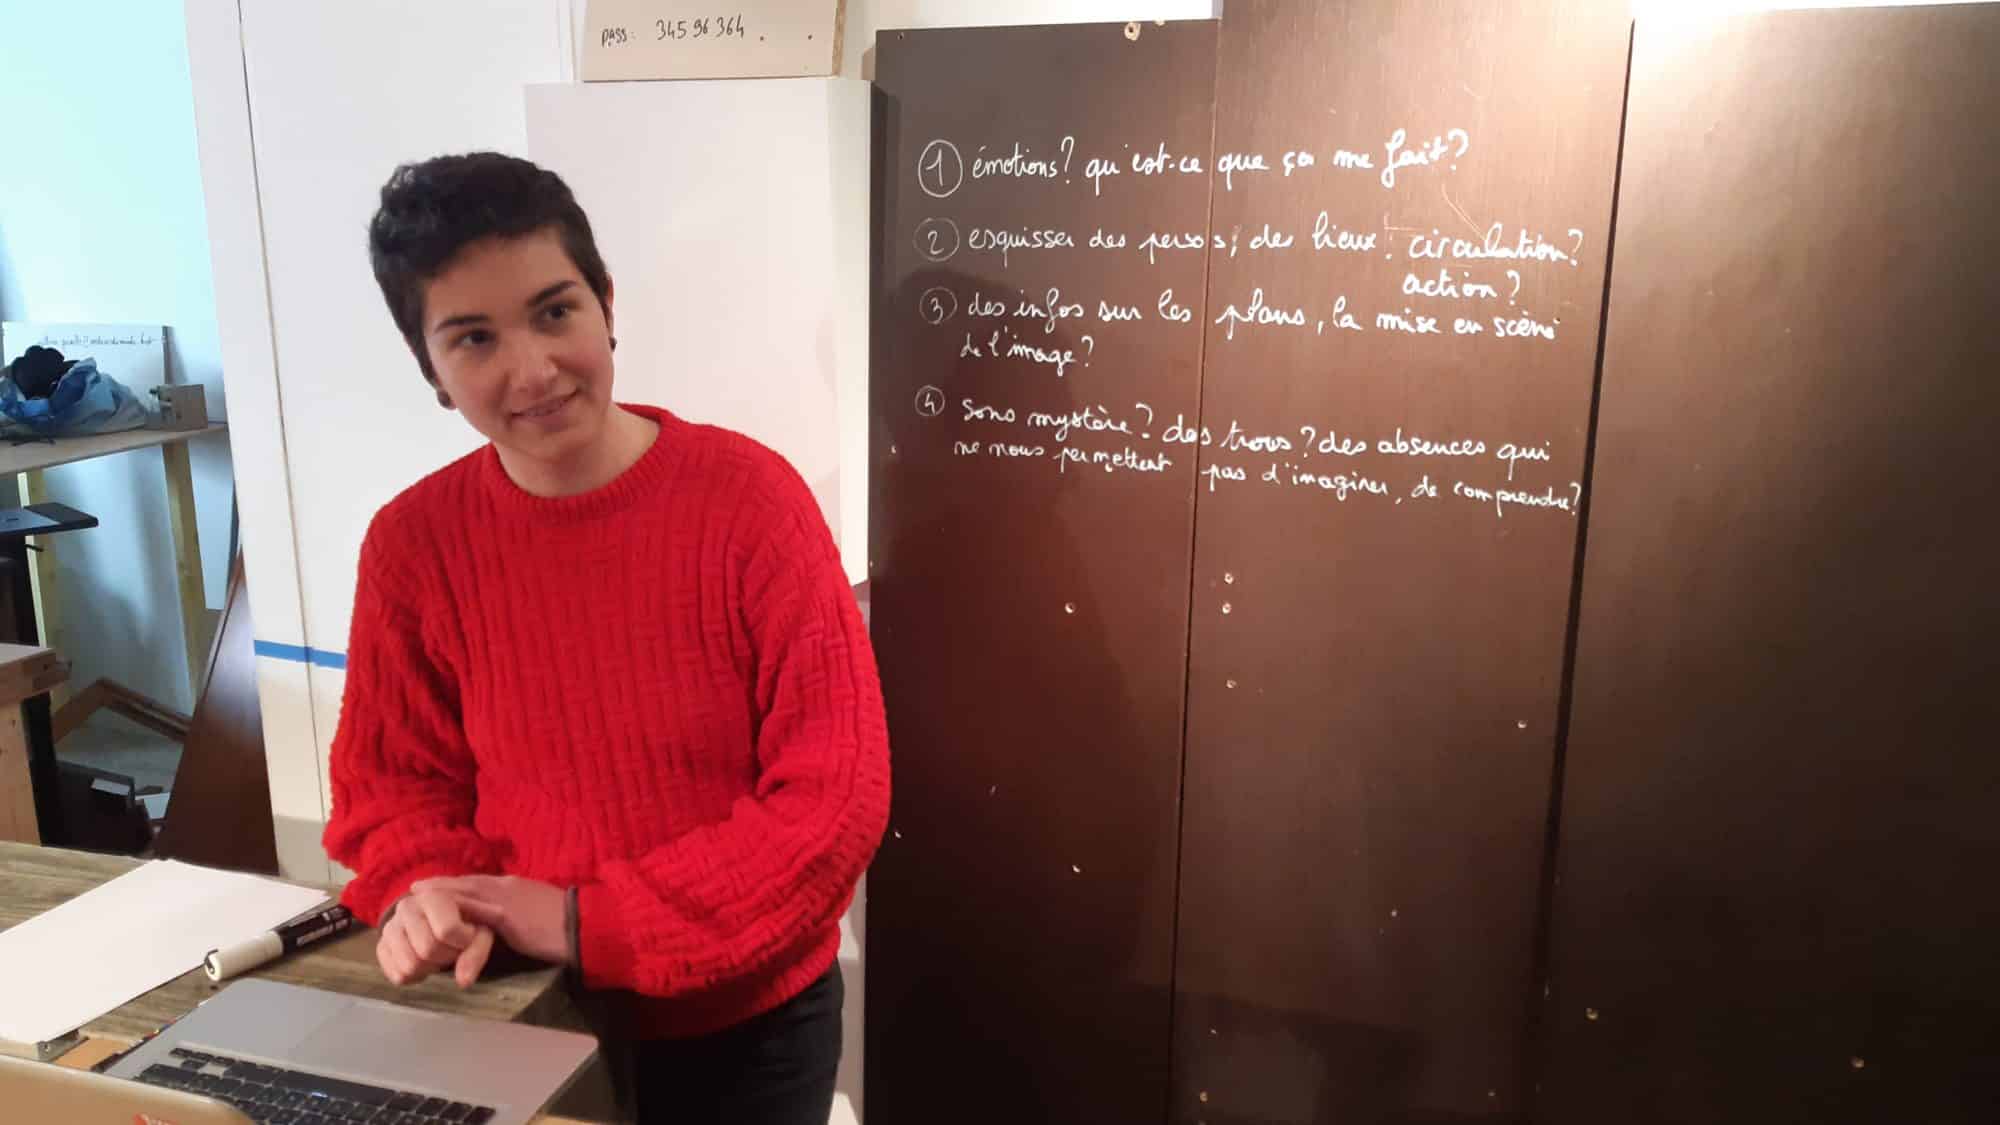 PASS: 345 96 364
① émotions? qu'est-ce que ça me fait?
② esquisser des persos, des lieux! circulation?
action?
③ des infos sur les plans, la mise en scène
de l'image?
④ sons mystère? des trous? des absences qui
ne nous permettent pas d'imaginer, de comprendre?